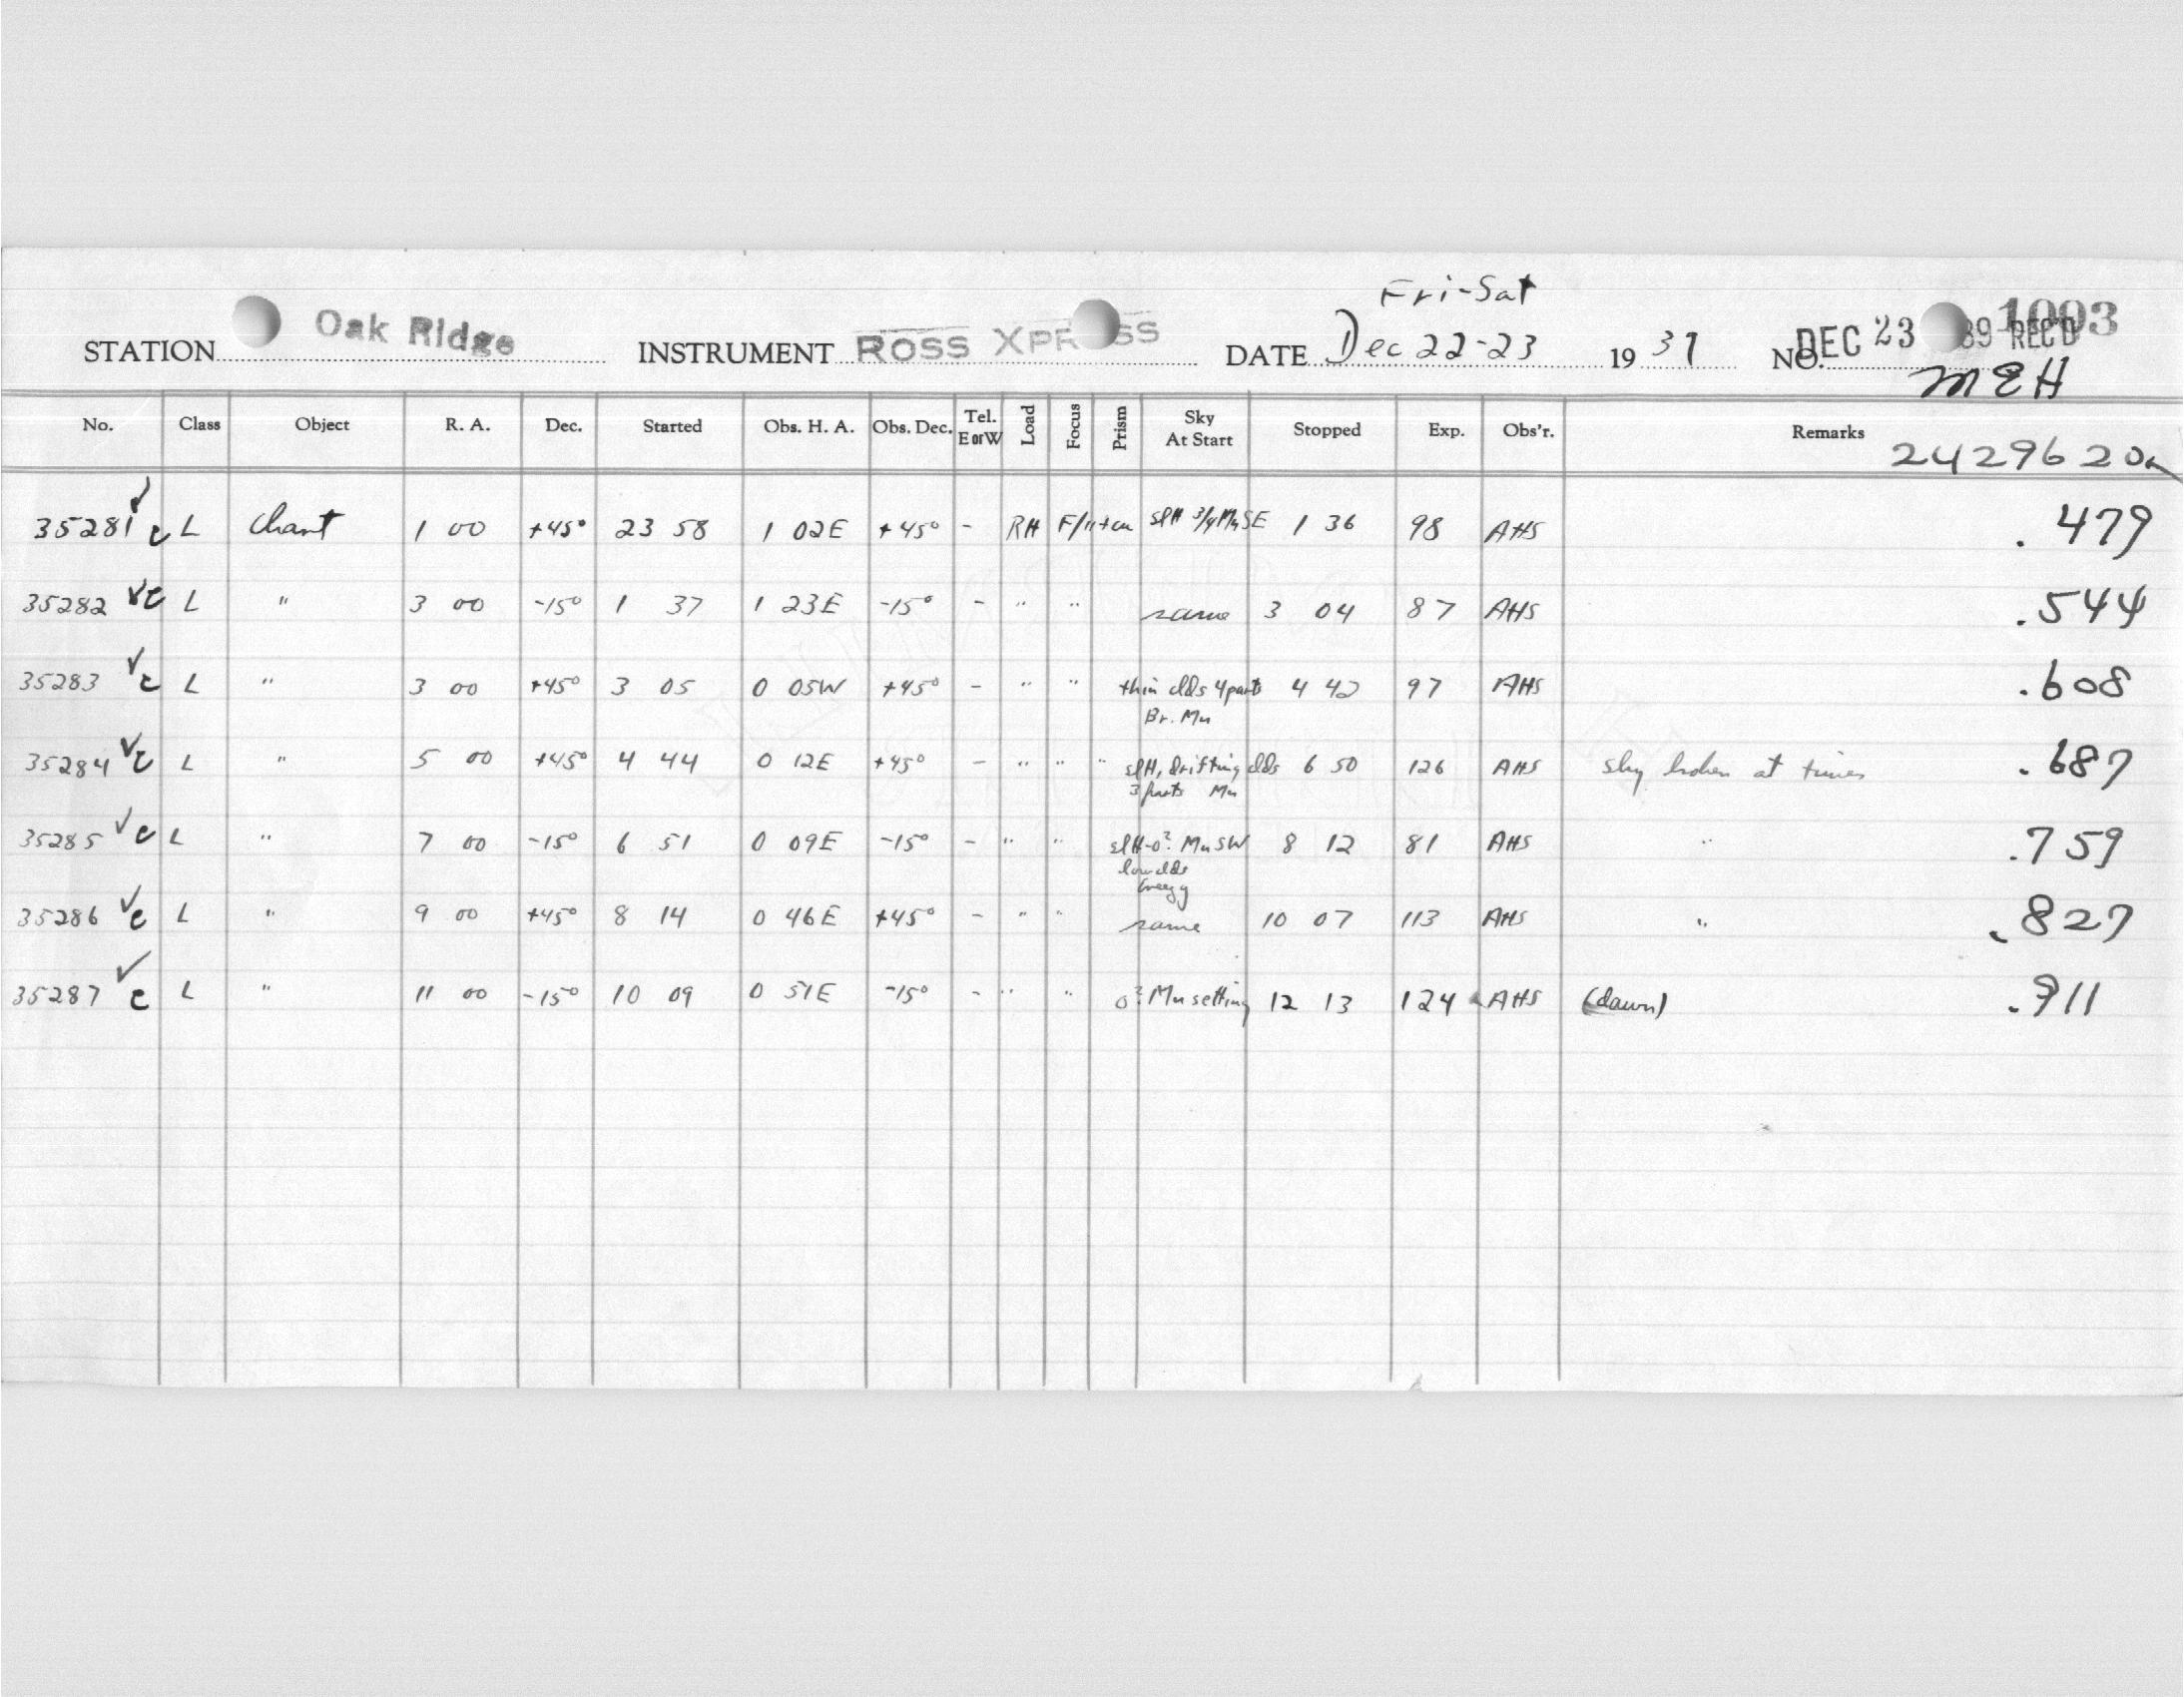 Fri-Sat
STATION Oak Ridge INSTRUMENT ROSS XPRESS DATE Dec 22-23 19 39 NO. DEC 23 39 REC'D 1093
MEH
No. Class Object R. A. Dec. Started Obs. H. A. Obs. Dec. Tel. E or W Load Focus Prism Sky At Start Stopped Exp. Obs'r. Remarks
2429620
35281 ✓ c L Chart 1 00 +45° 23 58 1 02E +45° - RH slH 3/4 Mn SE 1 36 98 AHS .479
35282 ✓ c L " 3 00 -15° 1 37 1 23E -15° - " " same 3 04 87 AHS .544
35283 ✓ c L " 3 00 +45° 3 05 0 05W +45° - " " thin clds 4 parts 4 42 97 AHS .608
Br. Mn
35284 ✓ c L " 5 00 +45° 4 44 0 12E +45° - " " " slH, drifting clds 6 50 126 AHS sky hzken at times .687
3 parts Mn
35285 ✓ c L " 7 00 -15° 6 51 0 09E -15° - " " slH-0? Mn SW 8 12 81 AHS " .759
low clds
breezy
35286 ✓ c L " 9 00 +45° 8 14 0 46E +45° - " " same 10 07 113 AHS " .827
35287 ✓ c L " 11 00 -15° 10 09 0 51E -15° - " " 0? Mn setting 12 13 124 AHS (dawn) .911